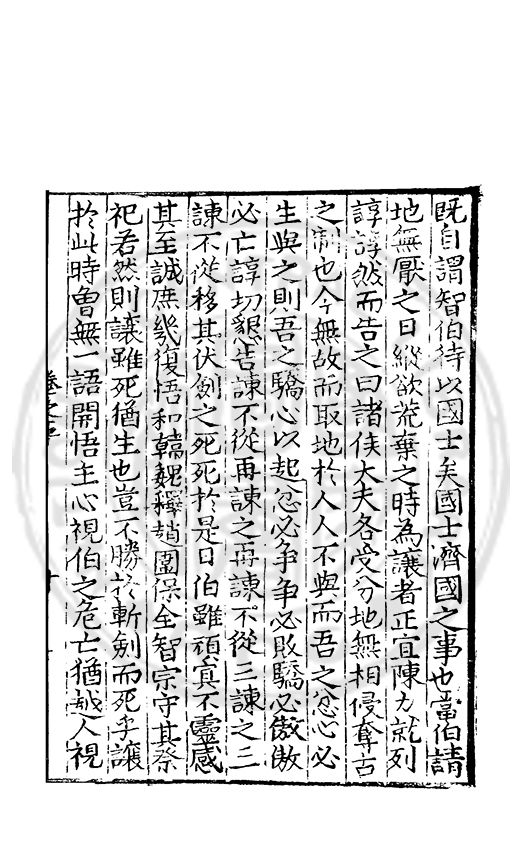 既自謂智伯待以國士矣國士濟國之事也當伯請
地無厭之日縱欲荒棄之時為讓者正宜陳力就列
諄諄然而告之曰諸侯大夫各受分地無相侵奪古
之制也今無故而取地於人人不與而吾之忿心必
生與之則吾之驕心以起忿必争争必敗驕必傲傲
必亡諄切懇告諫不從再諫之再諫不從三諫之三
諫不從移其伏劍之死死於是日伯雖頑冥不靈感
其至誠庶幾復悟和韓魏釋趙圍保全智宗守其祭
祀若然則讓雖死猶生也豈不勝於斬劍而死乎讓
於此時曾無一語開悟主心視伯之危亡猶越人視
卷之三
十